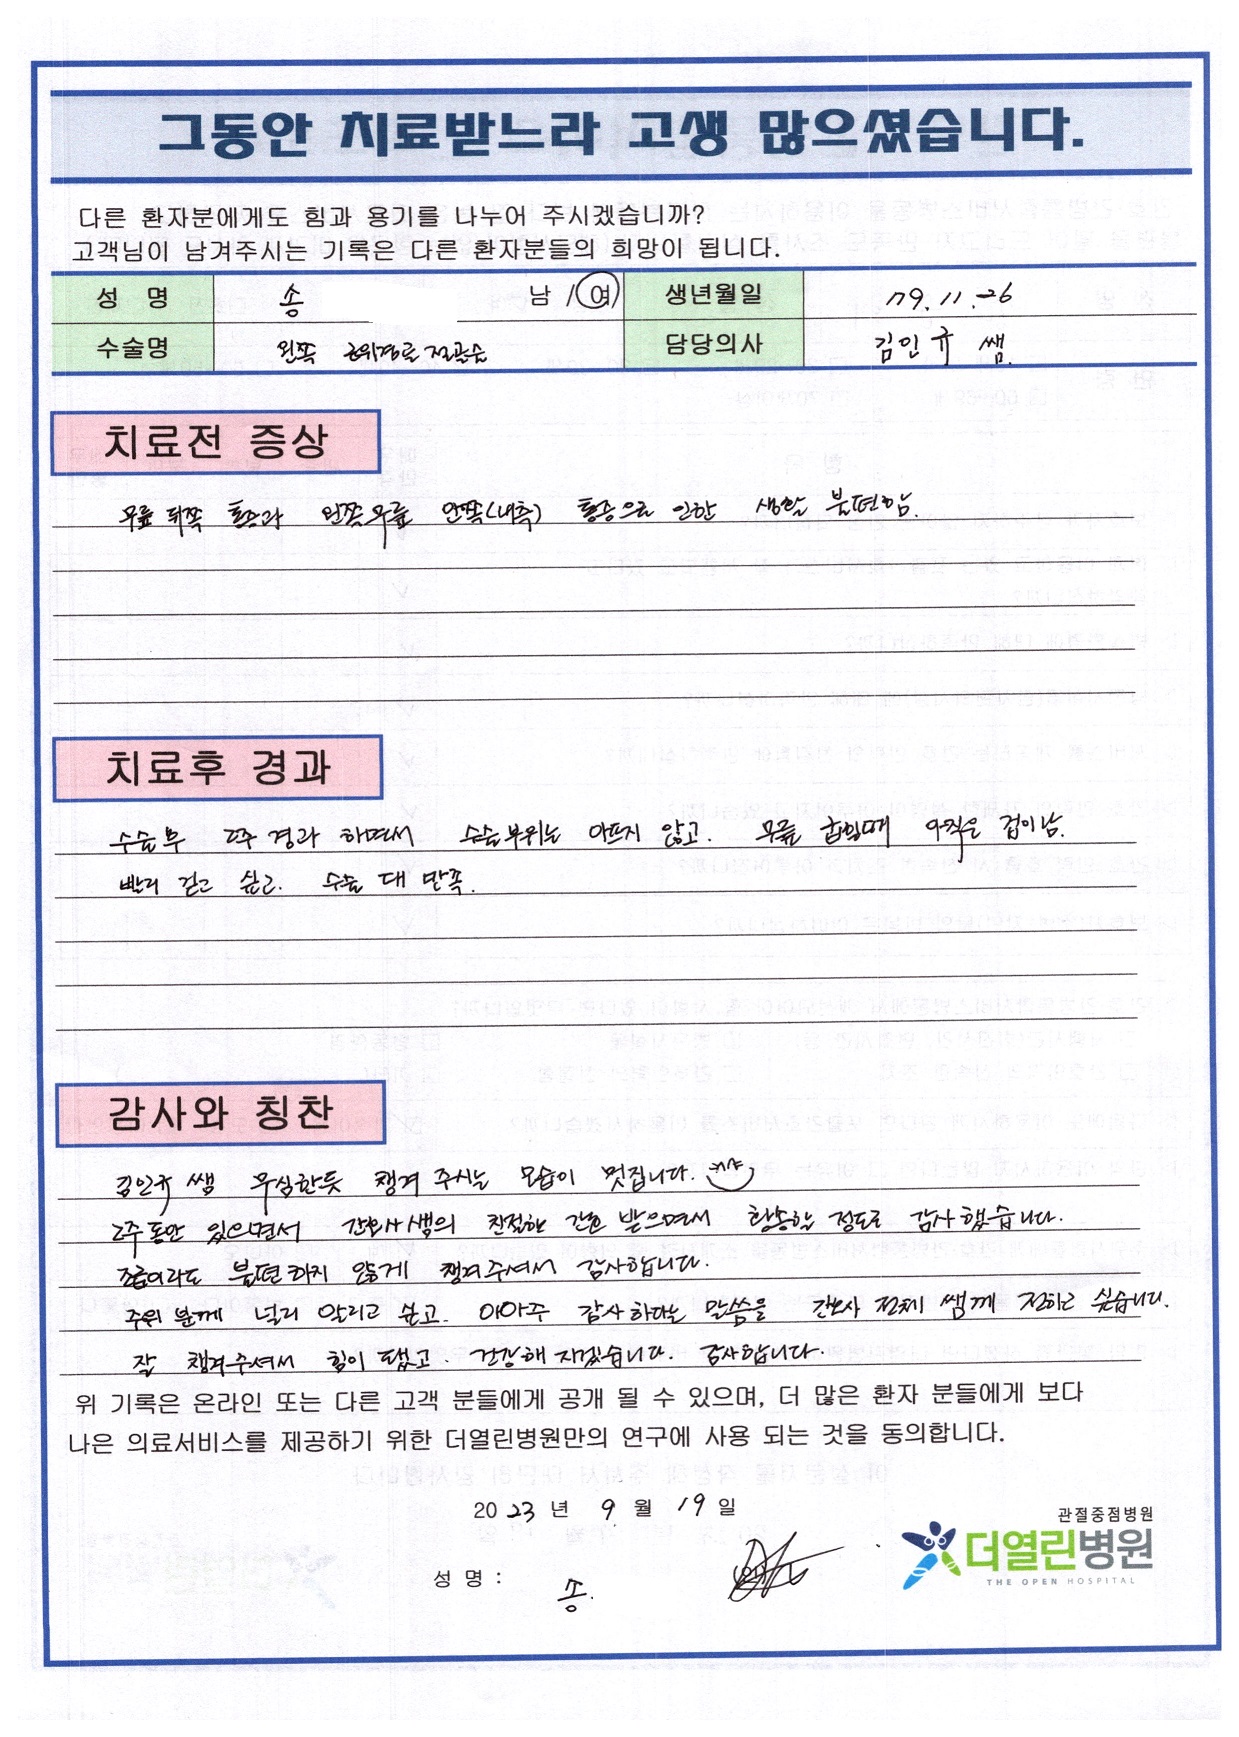 그동안 치료받느라 고생 많으셨습니다.
다른 환자분에게도 힘과 용기를 나누어 주시겠습니까?
고객님이 남겨주시는 기록은 다른 환자분들의 희망이 됩니다.
성 명 송 남 / 여 생년월일 79. 11. 26
수술명 왼쪽 근위경골 절골술 담당의사 김인규 쌤
치료전 증상
무릎 뒤쪽 통증과 왼쪽무릎 안쪽(내측) 통증으로 인한 생활 불편함.
치료후 경과
수술후 2주 경과 하면서 수술부위는 아프지 않고. 무릎 굽힐때 아직은 겁이남.
빨리 걷고 싶고. 수술 대 만족.
감사와 칭찬
김인규 쌤 무심한듯 챙겨 주시는 모습이 멋집니다.
2주동안 있으면서 간호사쌤의 친절한 간호 받으면서 황송할 정도로 감사했습니다.
조금이라도 불편하지 않게 챙겨주셔서 감사합니다.
주위 분께 널리 알리고 싶고. 아아주 감사하다는 말씀을 간호사 전체 쌤께 전하고 싶습니다.
잘 챙겨주셔서 힘이 됐고. 건강해 지겠습니다. 감사합니다.
위 기록은 온라인 또는 다른 고객 분들에게 공개 될 수 있으며, 더 많은 환자 분들에게 보다
나은 의료서비스를 제공하기 위한 더열린병원만의 연구에 사용 되는 것을 동의합니다.
2023 년 9 월 19 일
성 명 : 송.
관절중점병원
더열린병원
THE OPEN HOSPITAL